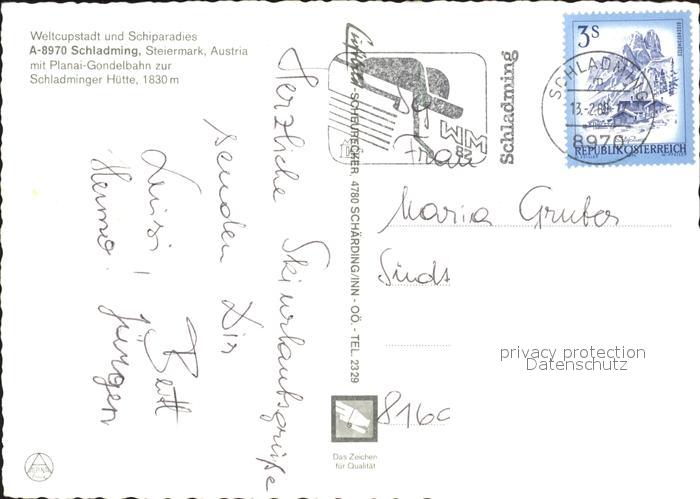 Weltcupstadt und Schiparadies
A-8970 Schladming, Steiermark, Austria
mit Planai-Gondelbahn zur
Schladminger Hütte, 1830 m
Herzliche Skiurlaubsgrüße
senden Dir
Luisi, Bertl
Hermo. Jürgen
SCHEURECKER, 4780 SCHÄRDING/INN - OÖ. - TEL. 2329
WM
Schladming
3 S
SCHLADMING
13.-2.
8970
REPUBLIK ÖSTERREICH
Frau
Maria Gruber
8160
privacy protection
Datenschutz
Das Zeichen
für Qualität